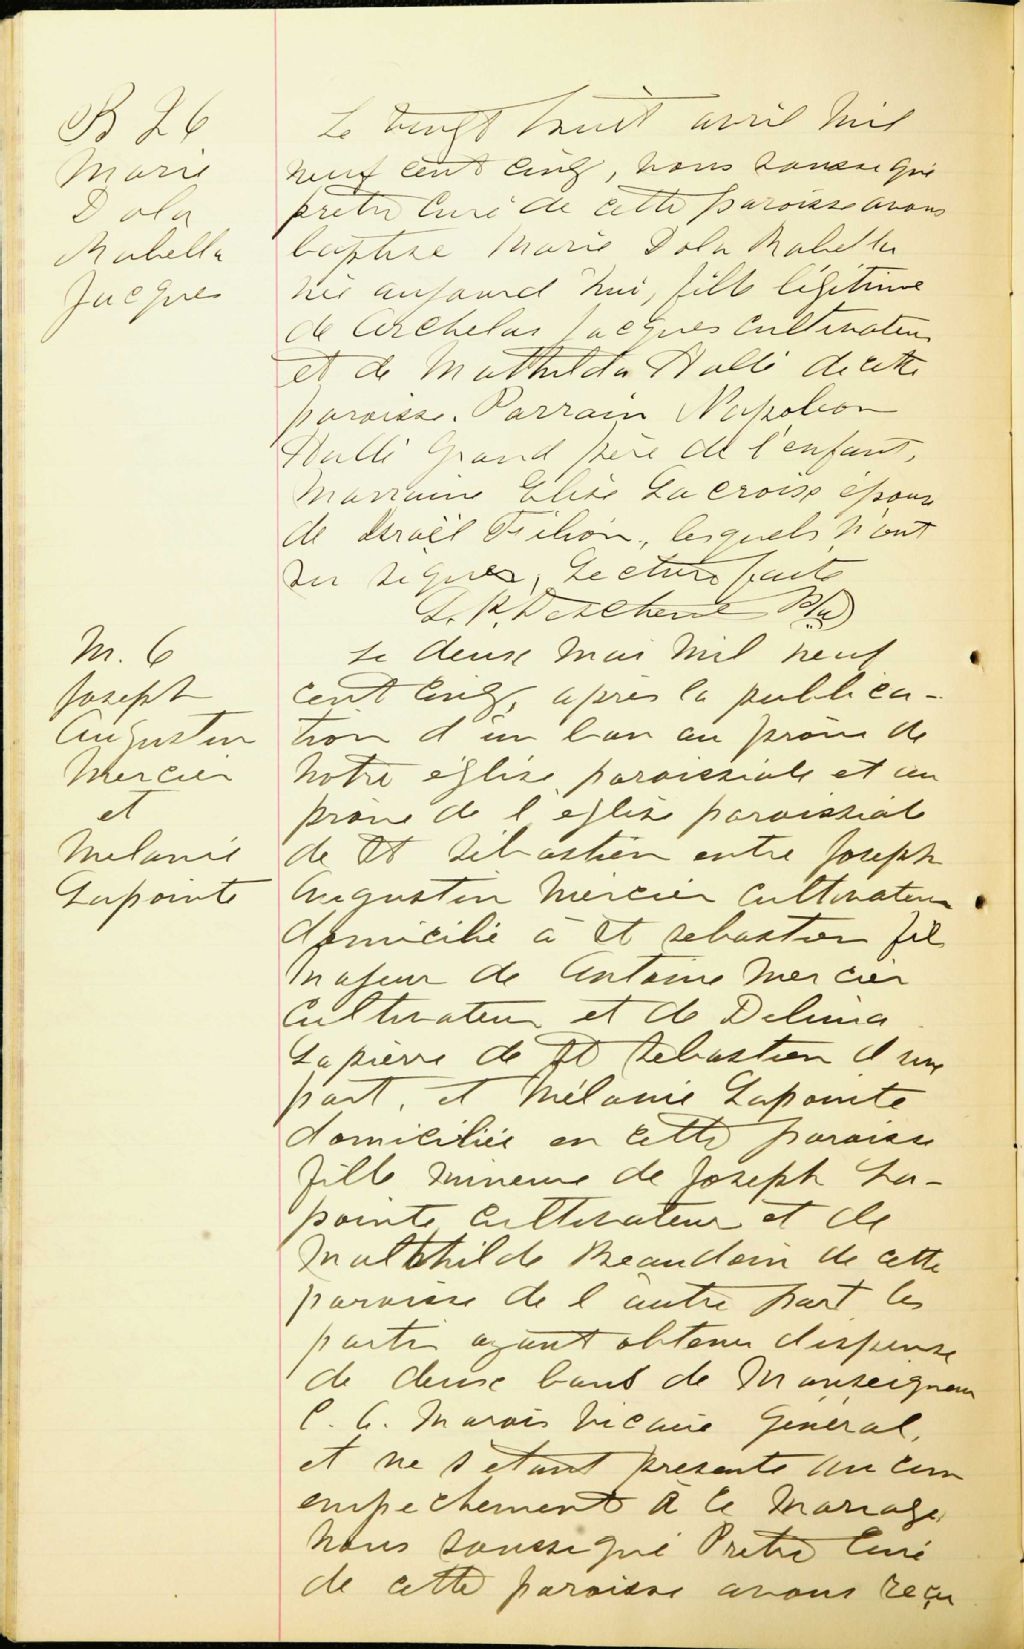 B 26
Marie
Dola
Rabella
Jacques
Le vingt huit avril mil
neuf cent cinq, nous soussigné
prêtre curé de cette paroisse avons
baptisé Marie Dola Rabella
née aujourd'hui, fille légitime
de Archelas Jacques cultivateur
et de Mathilda Hallé de cette
paroisse. Parrain Napoléon
Hallé Grand père de l'enfant,
Marraine Elise Lacroise épouse
de Israël Filion, lesquels n'ont
su signer, Lecture faite
Deschene Ptre
M. 6
Joseph
Augustin
Mercier
et
Melanie
Lapointe
Le deuse mai mil neuf
cent cinq, après la publica-
tion d'un ban au prône de
notre église paroissiale et au
prône de l'église paroissiale
de St Sébastien entre Joseph
Augustin Mercier cultivateur
domicilié à St Sebastien fils
majeur de Antoine Mercier
cultivateur et de Delima
Lapierre de St Sebastien d'une
part, et Mélanie Lapointe
domiciliée en cette paroisse
fille mineure de Joseph La-
pointe cultivateur et de
Malthilde Beaudoin de cette
paroisse de l'autre part les
parti ayant obtenu dispense
de deuse bans de Monseigneur
C. A. Marois Vicaire Général,
et ne s'étant presente aucun
empechement à ce mariage
nous soussigné Prêtre Curé
de cette paroisse avons reçu